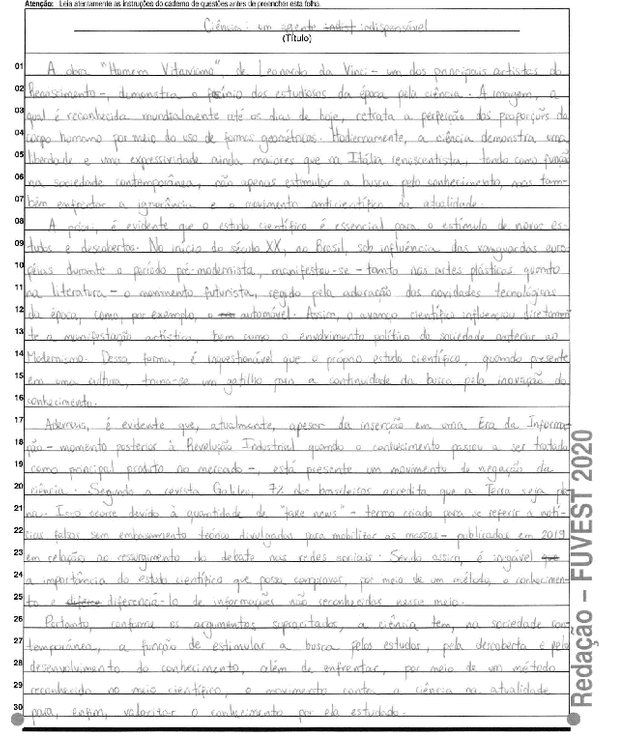 Atenção: Leia atentamente as instruções do caderno de questões antes de preencher esta folha.
Ciência: um agente indispensável
(Título)
01 A obra "Homem Vitruviano", de Leonardo da Vinci - um dos principais artistas do
02 Renascimento -, demonstra o fascínio dos estudiosos da época pela ciência. A imagem, a
03 qual é reconhecida mundialmente até os dias de hoje, retrata a perfeição das proporções do
04 corpo humano por meio do uso de formas geométricas. Hodiernamente, a ciência demonstra uma
05 liberdade e uma expressividade ainda maiores que na Itália renascentista, tendo como função
06 na sociedade contemporânea, não apenas estimular a busca pelo conhecimento, mas tam-
07 bém enfrentar a ignorância e o movimento anticientífico da atualidade.
08 A priori, é evidente que o estudo científico é essencial para o estímulo de novos es-
09 tudos e descobertas. No início do século XX, no Brasil, sob influência das vanguardas euro-
10 péias durante o período pré-modernista, manifestou-se - tanto nas artes plásticas quanto
11 na literatura - o movimento futurista, regido pela adoração das novidades tecnológicas
12 da época, como, por exemplo, o automóvel. Assim, o avanço científico influenciou diretamen-
13 te a manifestação artística, bem como o envolvimento político da sociedade anterior ao
14 Modernismo. Dessa forma, é inquestionável que o próprio estudo científico, quando presente
15 em uma cultura, torna-se um gatilho para a continuidade da busca pela inovação do
16 conhecimento.
17 Ademais, é evidente que, atualmente, apesar da inserção em uma Era da Informa-
18 ção - momento posterior à Revolução Industrial quando o conhecimento passou a ser tratado
19 como principal produto no mercado -, está presente um movimento de negação da
20 ciência. Segundo a revista Galileu, 7% dos brasileiros acredita que a Terra seja pla-
21 na. Isso ocorre devido à quantidade de "fake news" - termo criado para se referir a notí-
22 cias falsas sem embasamento teórico divulgadas para mobilizar as massas - publicadas em 2019
23 em relação ao ressurgimento do debate nas redes sociais. Sendo assim, é inegável
24 a importância do estudo científico que possa comprovar, por meio de um método, o conhecimen-
25 to e diferenciá-lo de informações não reconhecidas nesse meio.
26 Portanto, conforme os argumentos supracitados, a ciência tem, na sociedade con-
27 temporânea, a função de estimular a busca pelos estudos, pela descoberta e pelo
28 desenvolvimento do conhecimento, além de enfrentar, por meio de um método
29 reconhecido no meio científico, o movimento contra a ciência na atualidade
30 para, enfim, valorizar o conhecimento por ela estudado.
Redação – FUVEST 2020